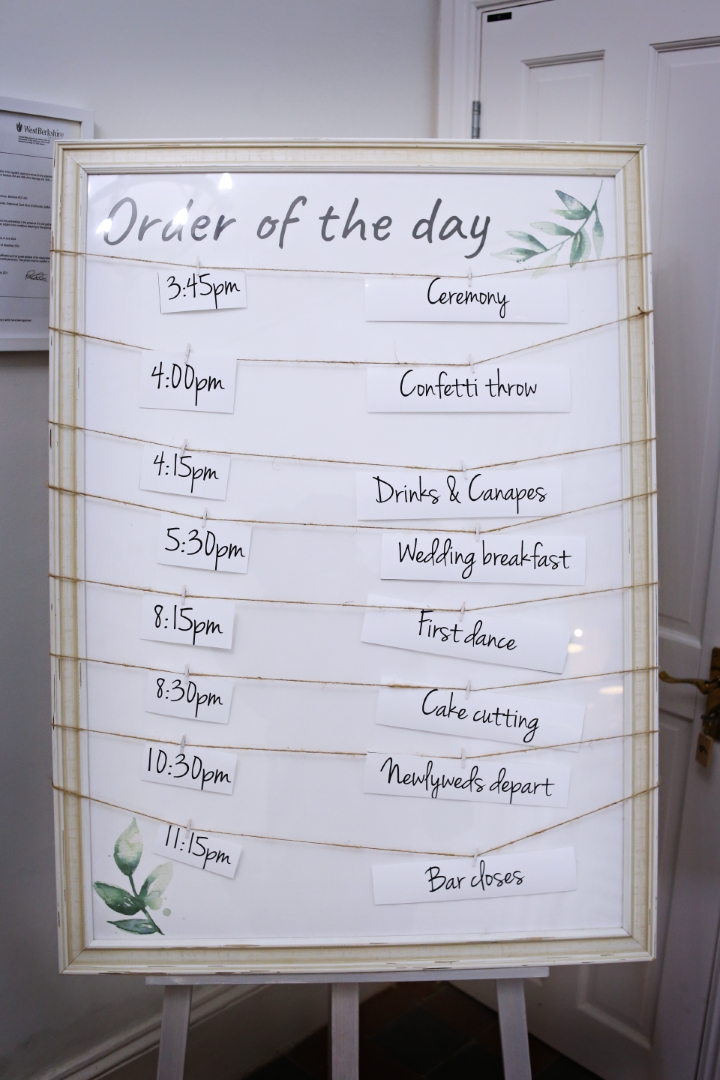 WestBerkshire
Order of the day
3:45pm Ceremony
4:00pm Confetti throw
4:15pm Drinks & Canapes
5:30pm Wedding breakfast
8:15pm First dance
8:30pm Cake cutting
10:30pm Newlyweds depart
11:15pm Bar closes